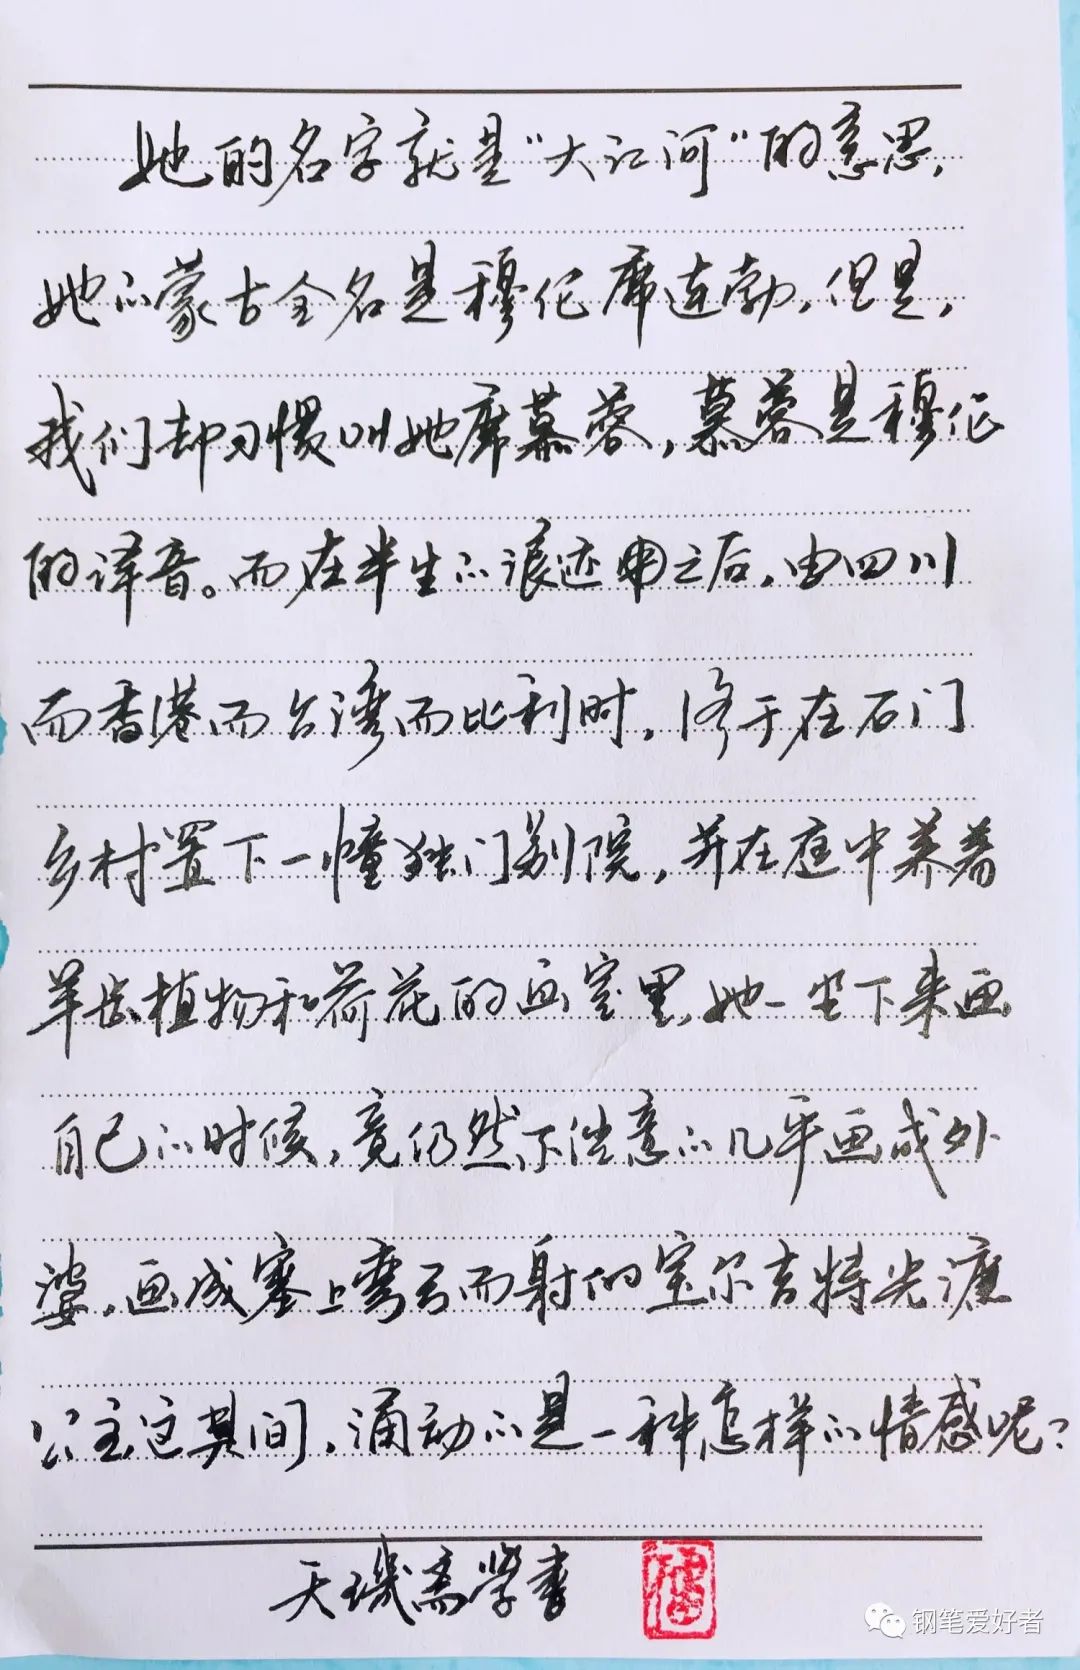 她的名字就是“大江河”的意思，
她的蒙古全名是穆伦席连勃，但是，
我们却习惯叫她席慕蓉，慕蓉是穆伦
的译音。而在半生的浪迹之后，由四川
而香港而台湾而比利时，终于在石门
乡村置下一幢独门别院，并在庭中养着
羊齿植物和荷花的画室里，她一坐下来画
自己的时候，竟仍然不经意的几乎画成外
婆，画成塞上弯弓而射的宝尔吉特光濂
公主这其间，涌动的是一种怎样的情感呢？
天玑斋学书
钢笔爱好者